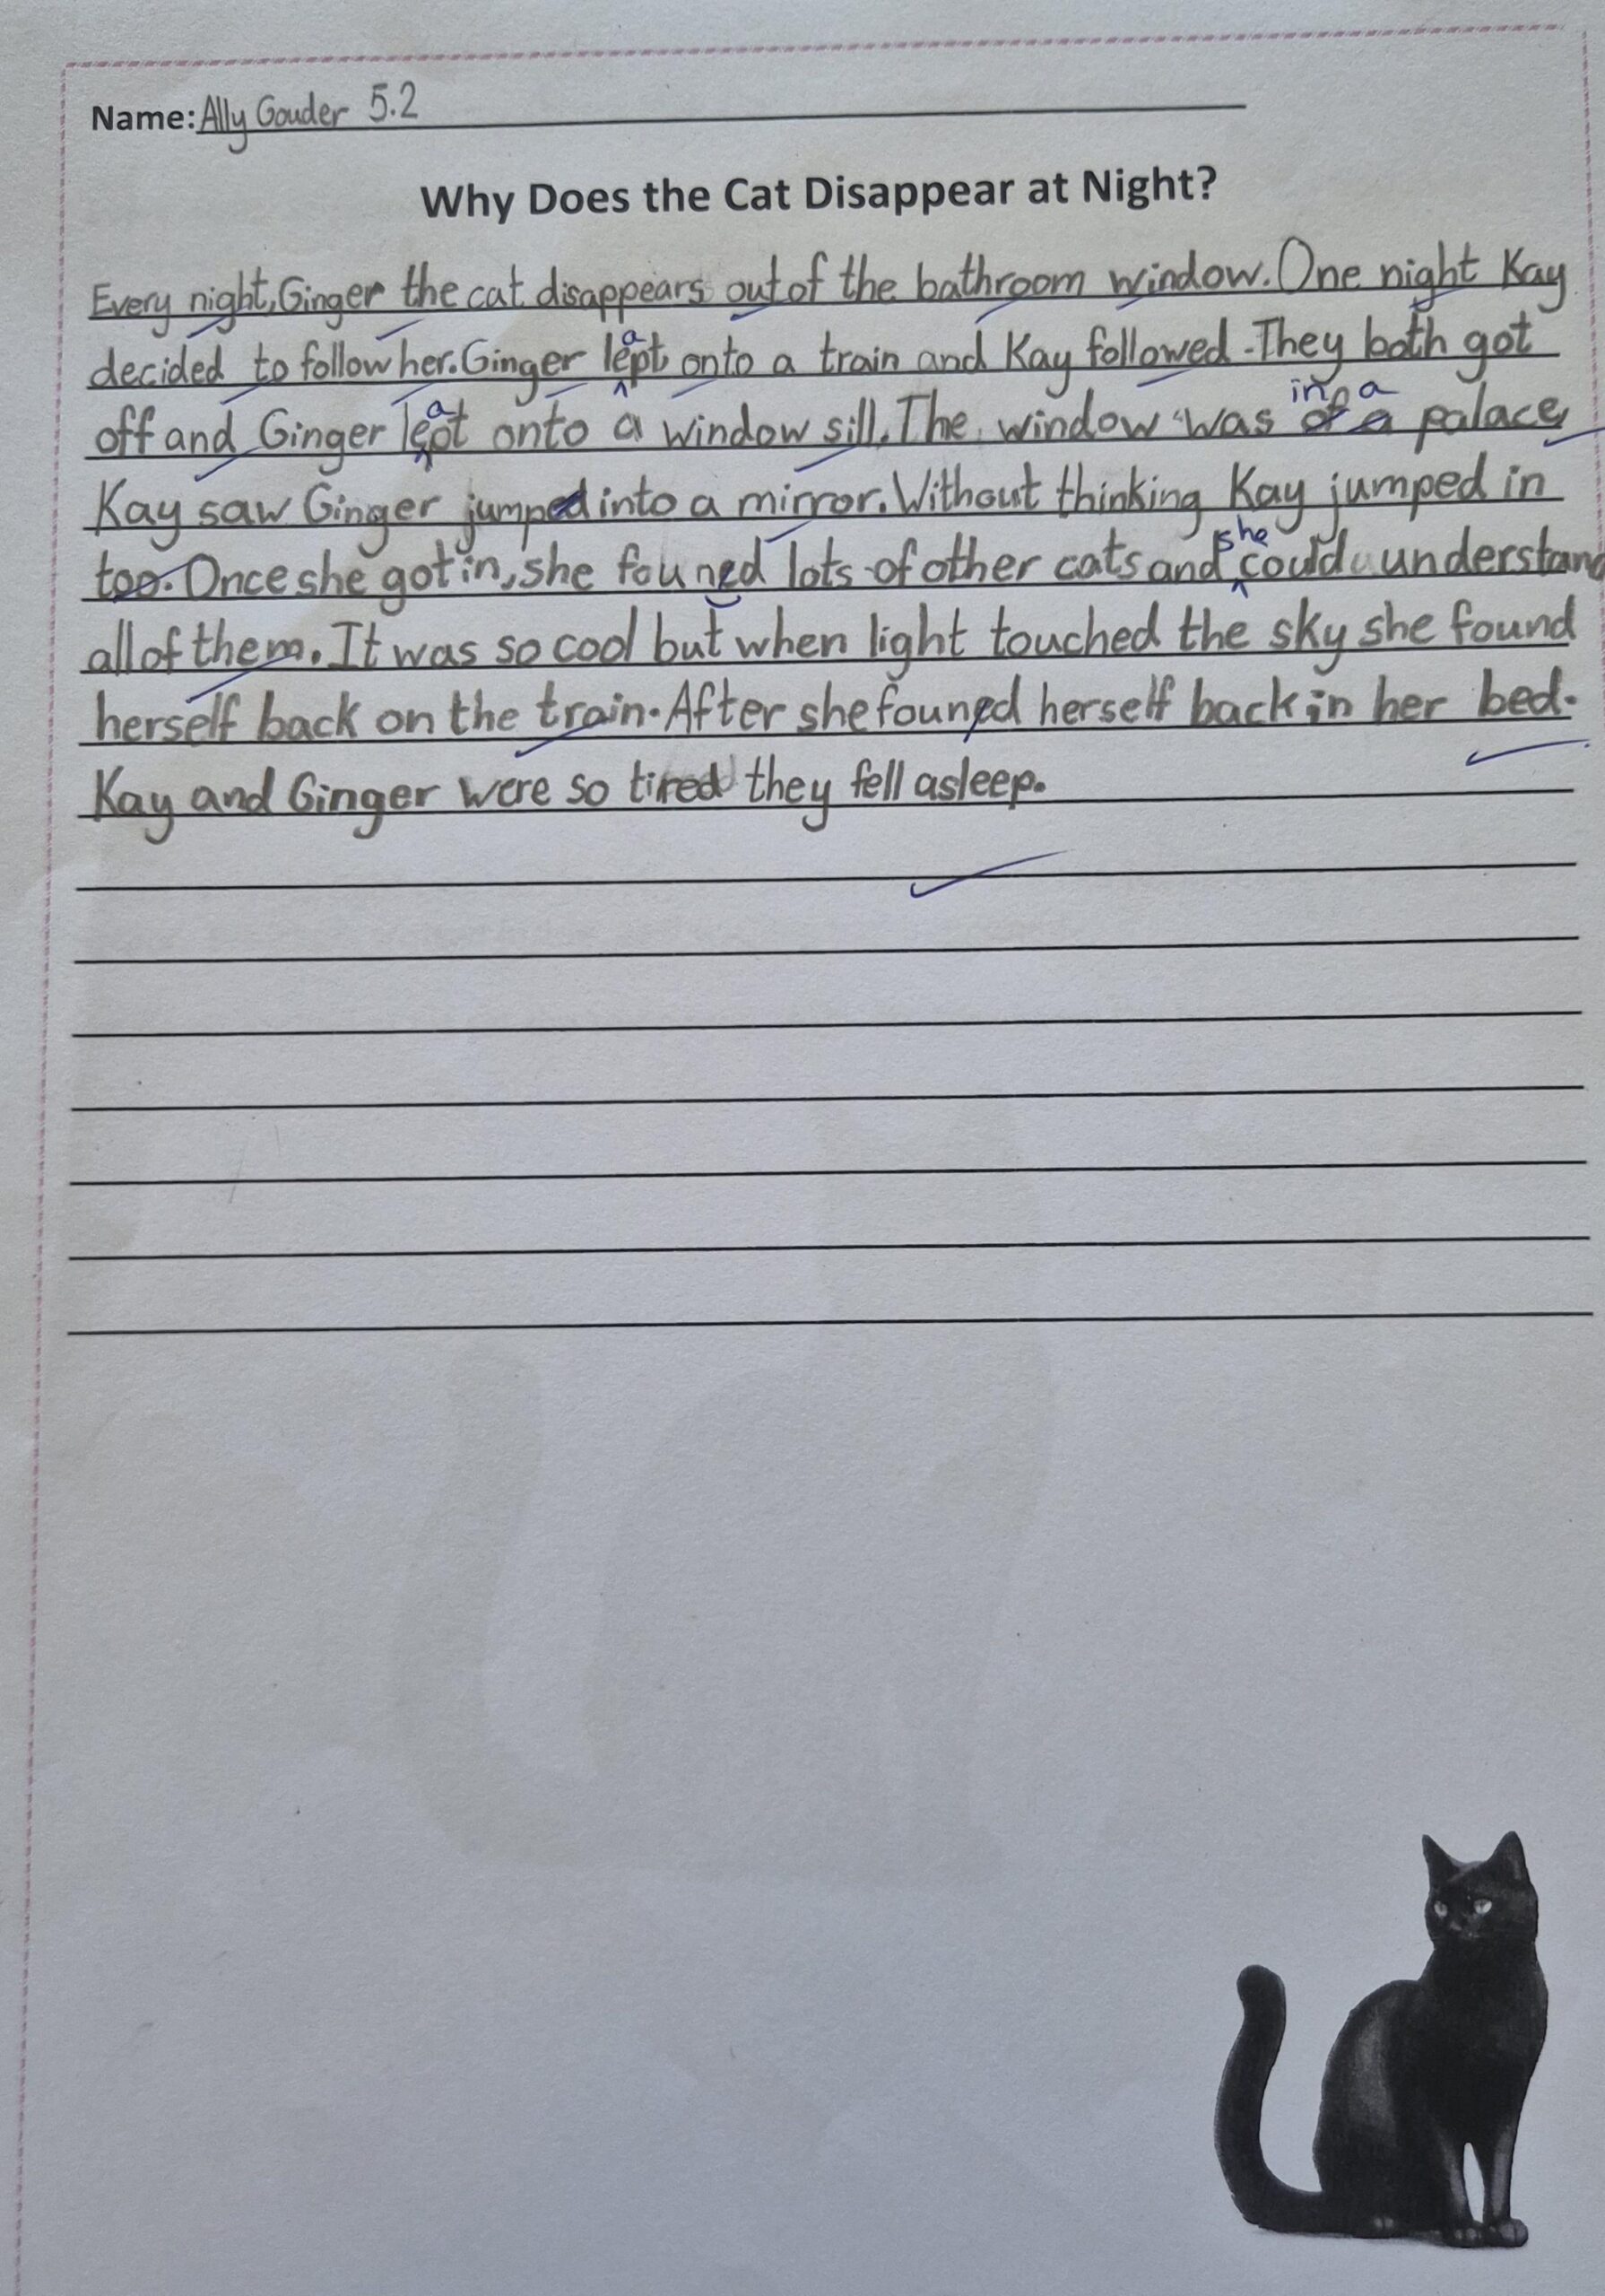 Name: Ally Gouder 5.2
Why Does the Cat Disappear at Night?
Every night, Ginger the cat disappears out of the bathroom window. One night Kay
a
decided to follow her. Ginger lept onto a train and Kay followed. They both got
a in a
off and Ginger lept onto a window sill. The window was of a palace,
Kay saw Ginger jumped into a mirror. Without thinking Kay jumped in
she
too. Once she got in, she founed lots of other cats and could understand
all of them. It was so cool but when light touched the sky she found
herself back on the train. After she founed herself back in her bed.
Kay and Ginger were so tired they fell asleep.